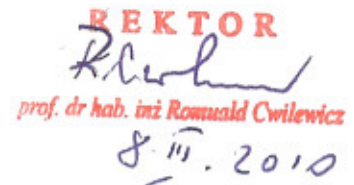 REKTOR
prof. dr hab. inż Romuald Cwilewicz
8 III. 2010